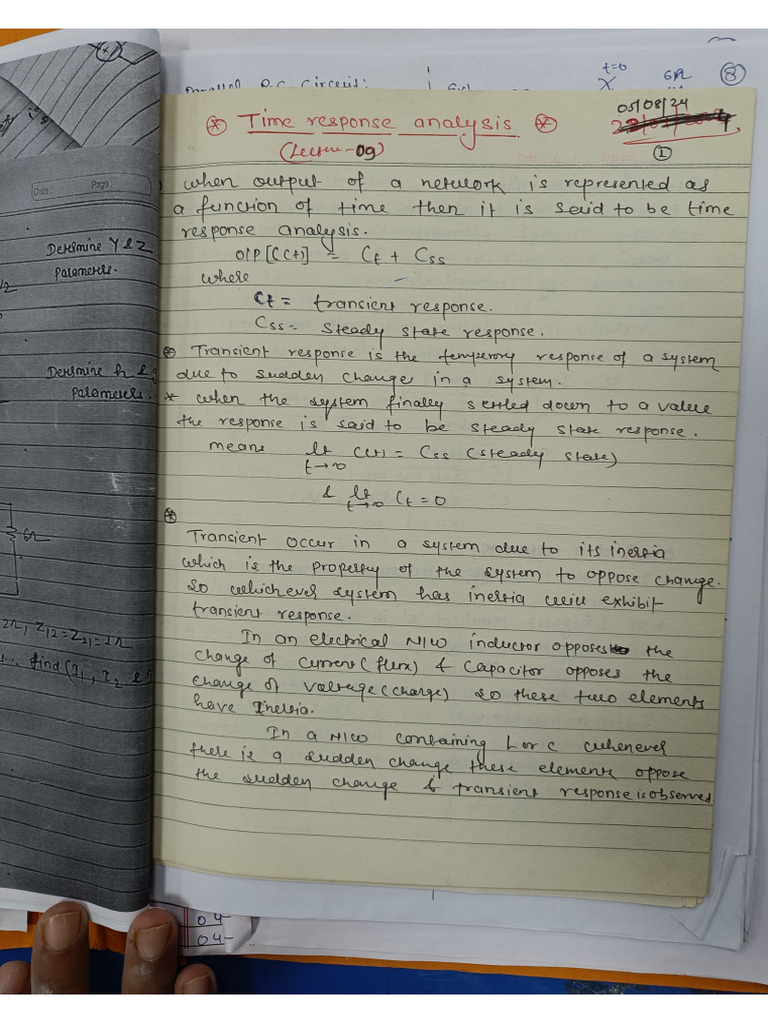 t=0
6Ω
8
Parallel R-C Circuit:
05/08/24
* Time response analysis *
(Lecture-09)
1
when output of a network is represented as
a function of time then it is said to be time
response analysis.
O/P [C(t)] = Ct + Css
where
Ct = transient response.
Css = Steady state response.
* Transient response is the temperory response of a system
due to sudden change in a system.
* when the system finally settled down to a value
the response is said to be steady state response.
means lt t→∞ C(t) = Css (steady state)
& lt t→∞ Ct = 0
*
Transient occur in a system due to its inertia
which is the property of the system to oppose change.
so whichever system has inertia will exhibit
transient response.
In an electrical N/W inductor opposes the
change of current (flux) & Capacitor opposes the
change of voltage (charge) so these two elements
have Inertia.
In a N/W containing L or C whenever
there is a sudden change these elements oppose
the sudden change & transient response is observed
Date: Page:
Determine Y & Z
Parameters.
Determine h & g
Parameters.
6Ω
2Ω, Z12 = Z21 = 1Ω
find (I1, I2 &
04
04